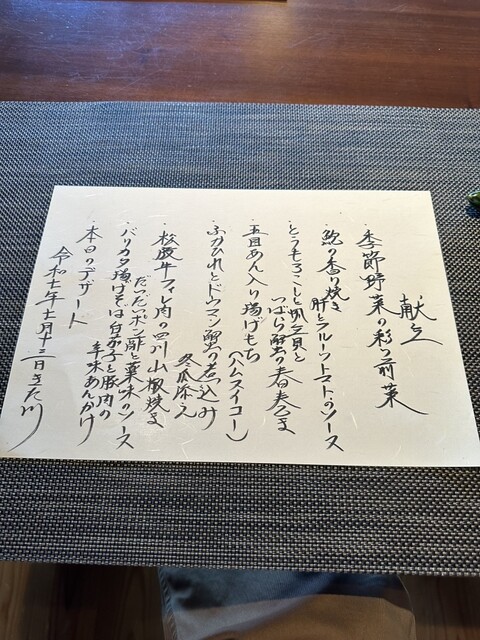 献立
・季節野菜の彩り前菜
・鮑の香り焼き
肝とフルーツトマトのソース
・とうもろこしと帆立貝と
つぶら蟹の春巻き
・五目あん入り揚げもち
(ハムスイコー)
・ふかひれとドウマン蟹の煮込み
冬瓜添え
・松阪牛フィレ肉の四川山椒焼き
だいだいポン酢と薬味のソース
・バリカタ揚げそば白茄子と豚肉の
辛味あんかけ
・本日のデザート
令和七年七月十三日 きた川